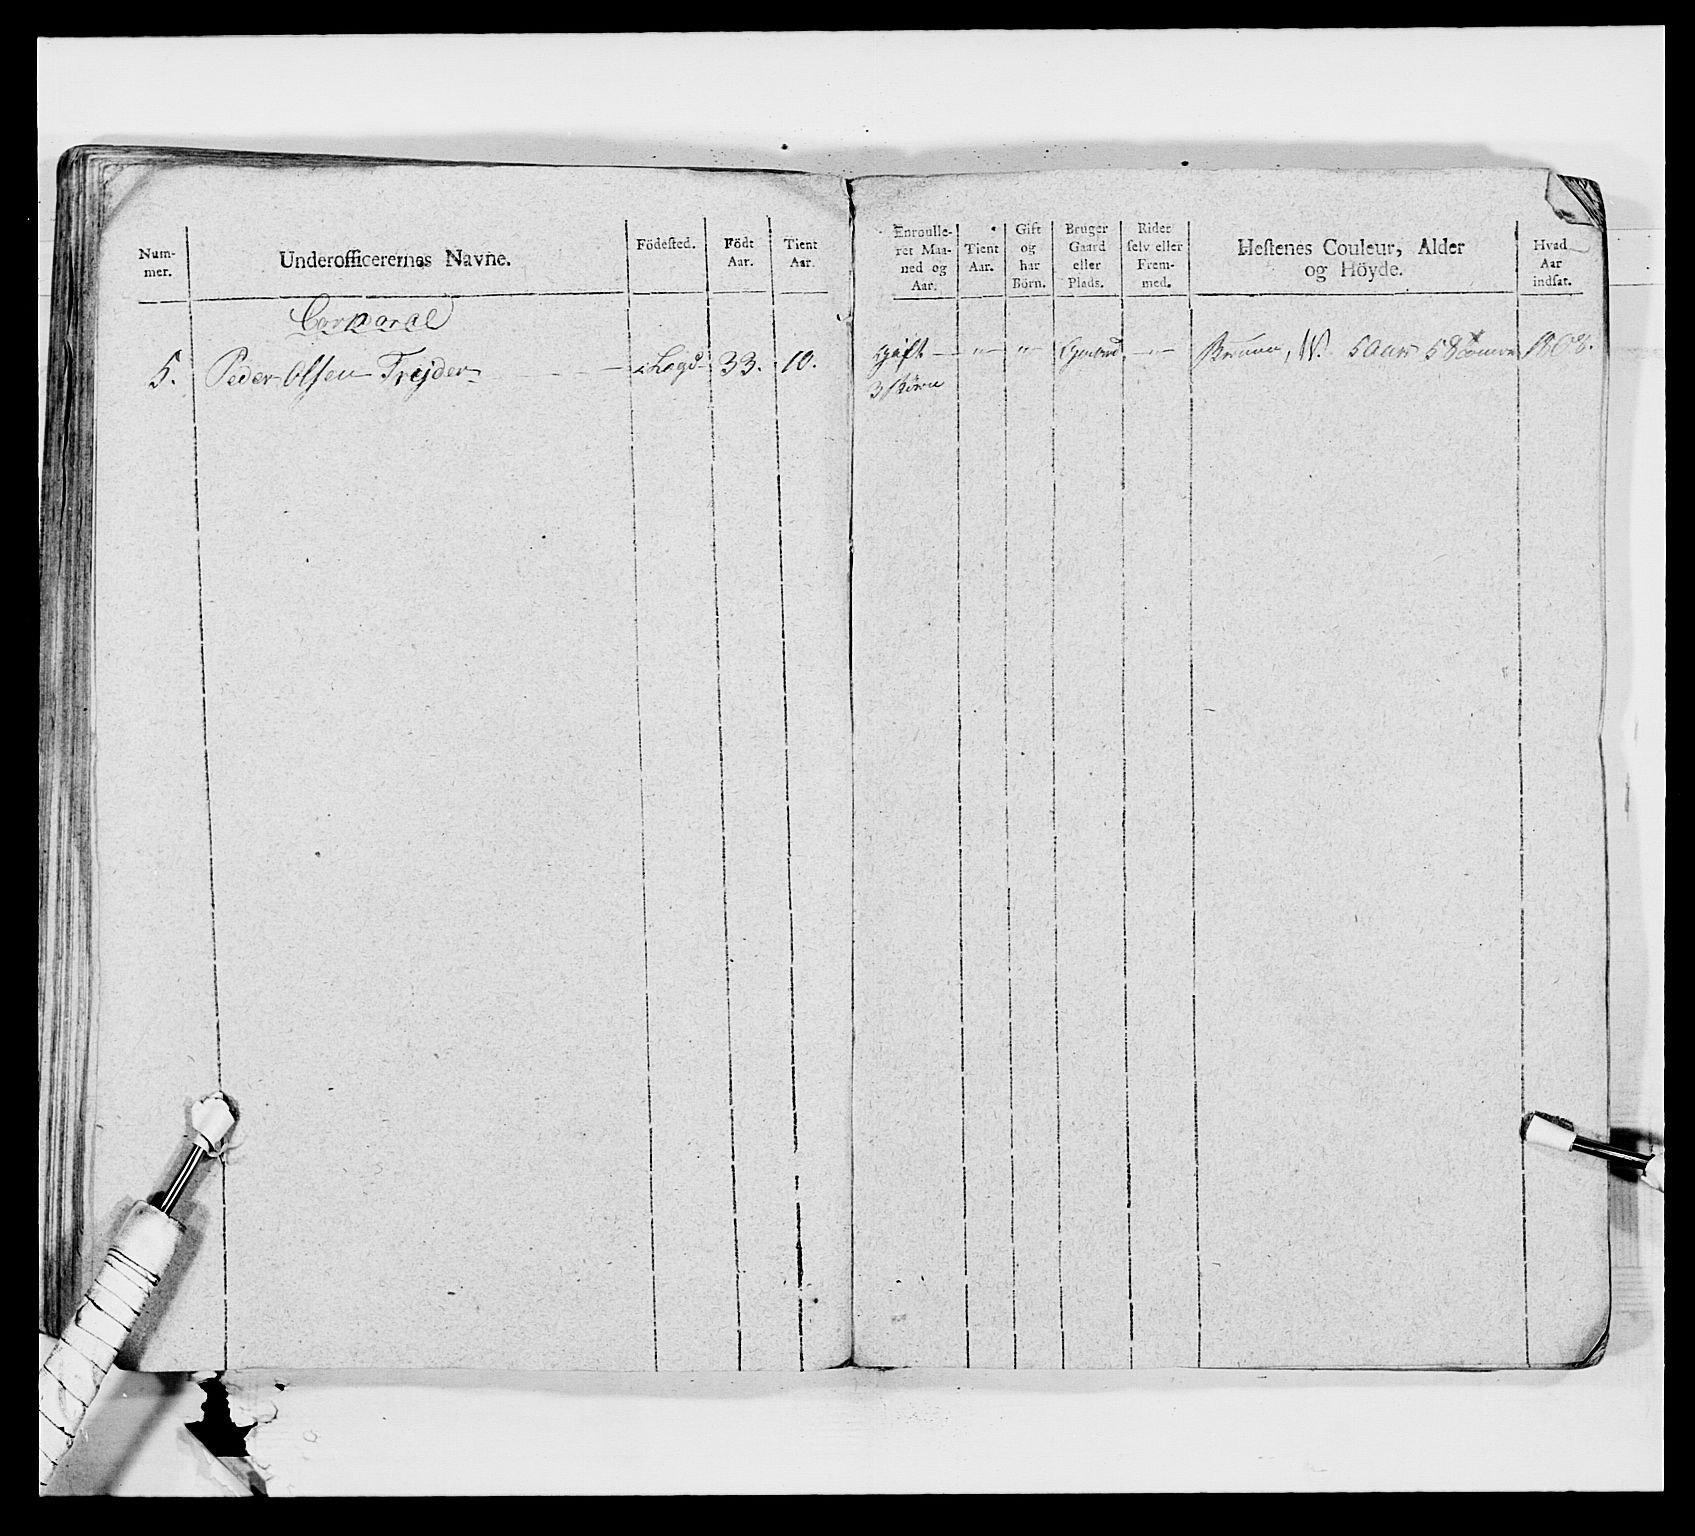 Num-
mer.
Underofficerernes Navne.
Födested.
Födt
Aar.
Tient
Aar.
Enroulle-
ret Maa-
ned og
Aar.
Tient
Aar.
Gift
og
har
Börn.
Bruger
Gaard
eller
Plads.
Rider
selv eller
Frem-
med.
Hestenes Couleur, Alder
og Höyde.
Hvad
Aar
indsat.
Corporal
5. Peder Olsen Trejder 33. 10. gift 5 aar 58 1808.
3 Börn